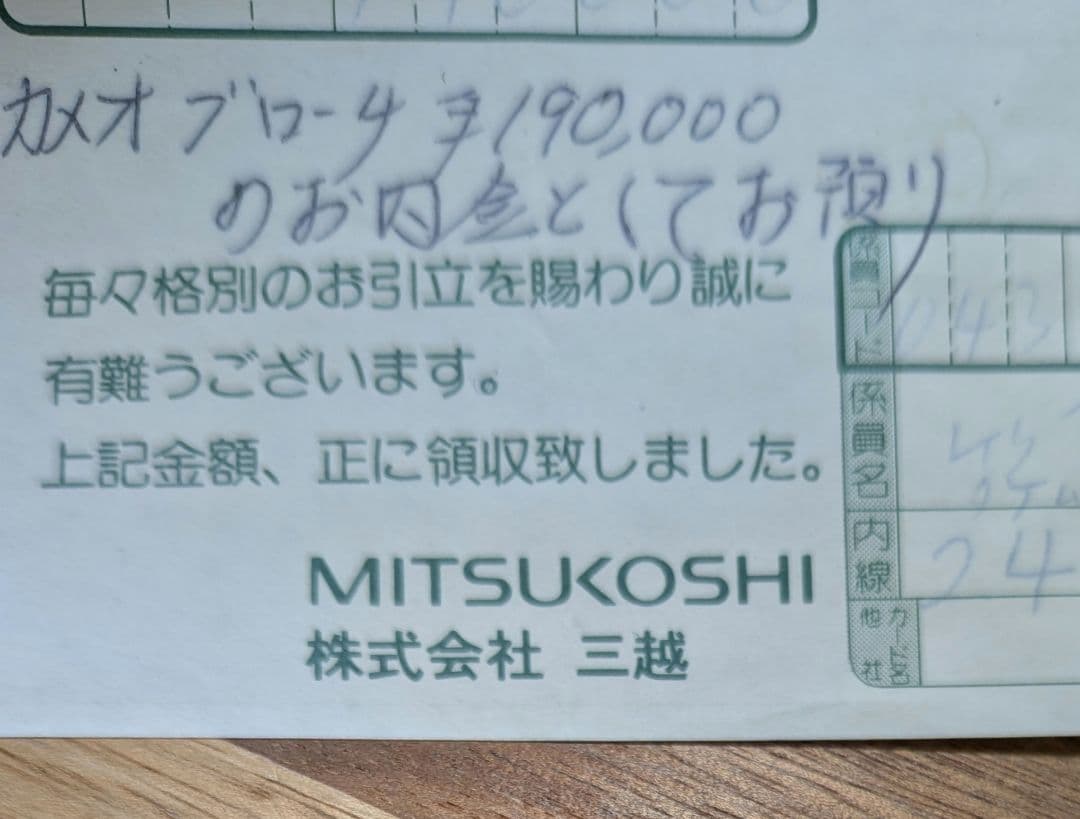 カメオ ブローチ ¥190,000
のお内金としてお預り
毎々格別のお引立を賜わり誠に
有難うございます。
上記金額、正に領収致しました。
MITSUKOSHI
株式会社 三越
係員コード 043
係員名
内線 24
他社カード名